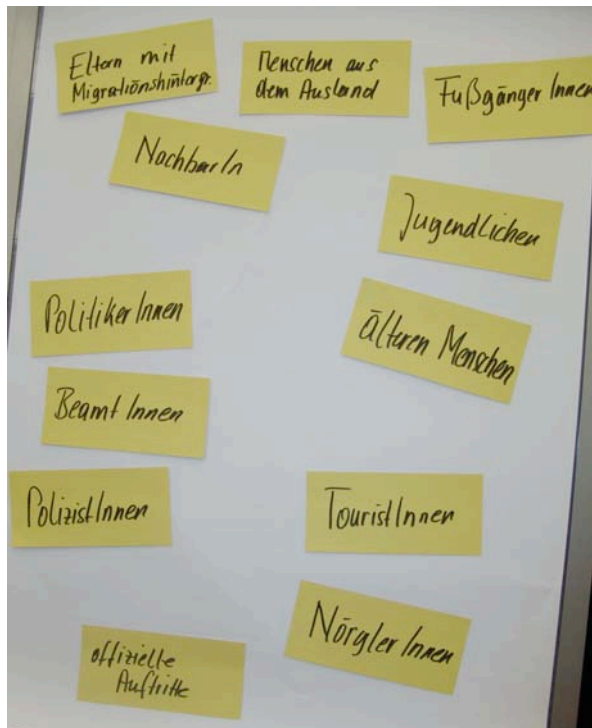 Eltern mit
Migrationshintergr.
Menschen aus
dem Ausland
FußgängerInnen
NachbarIn
Jugendlichen
PolitikerInnen
älteren Menschen
BeamtInnen
PolizistInnen
TouristInnen
NörglerInnen
offizielle
Auftritte